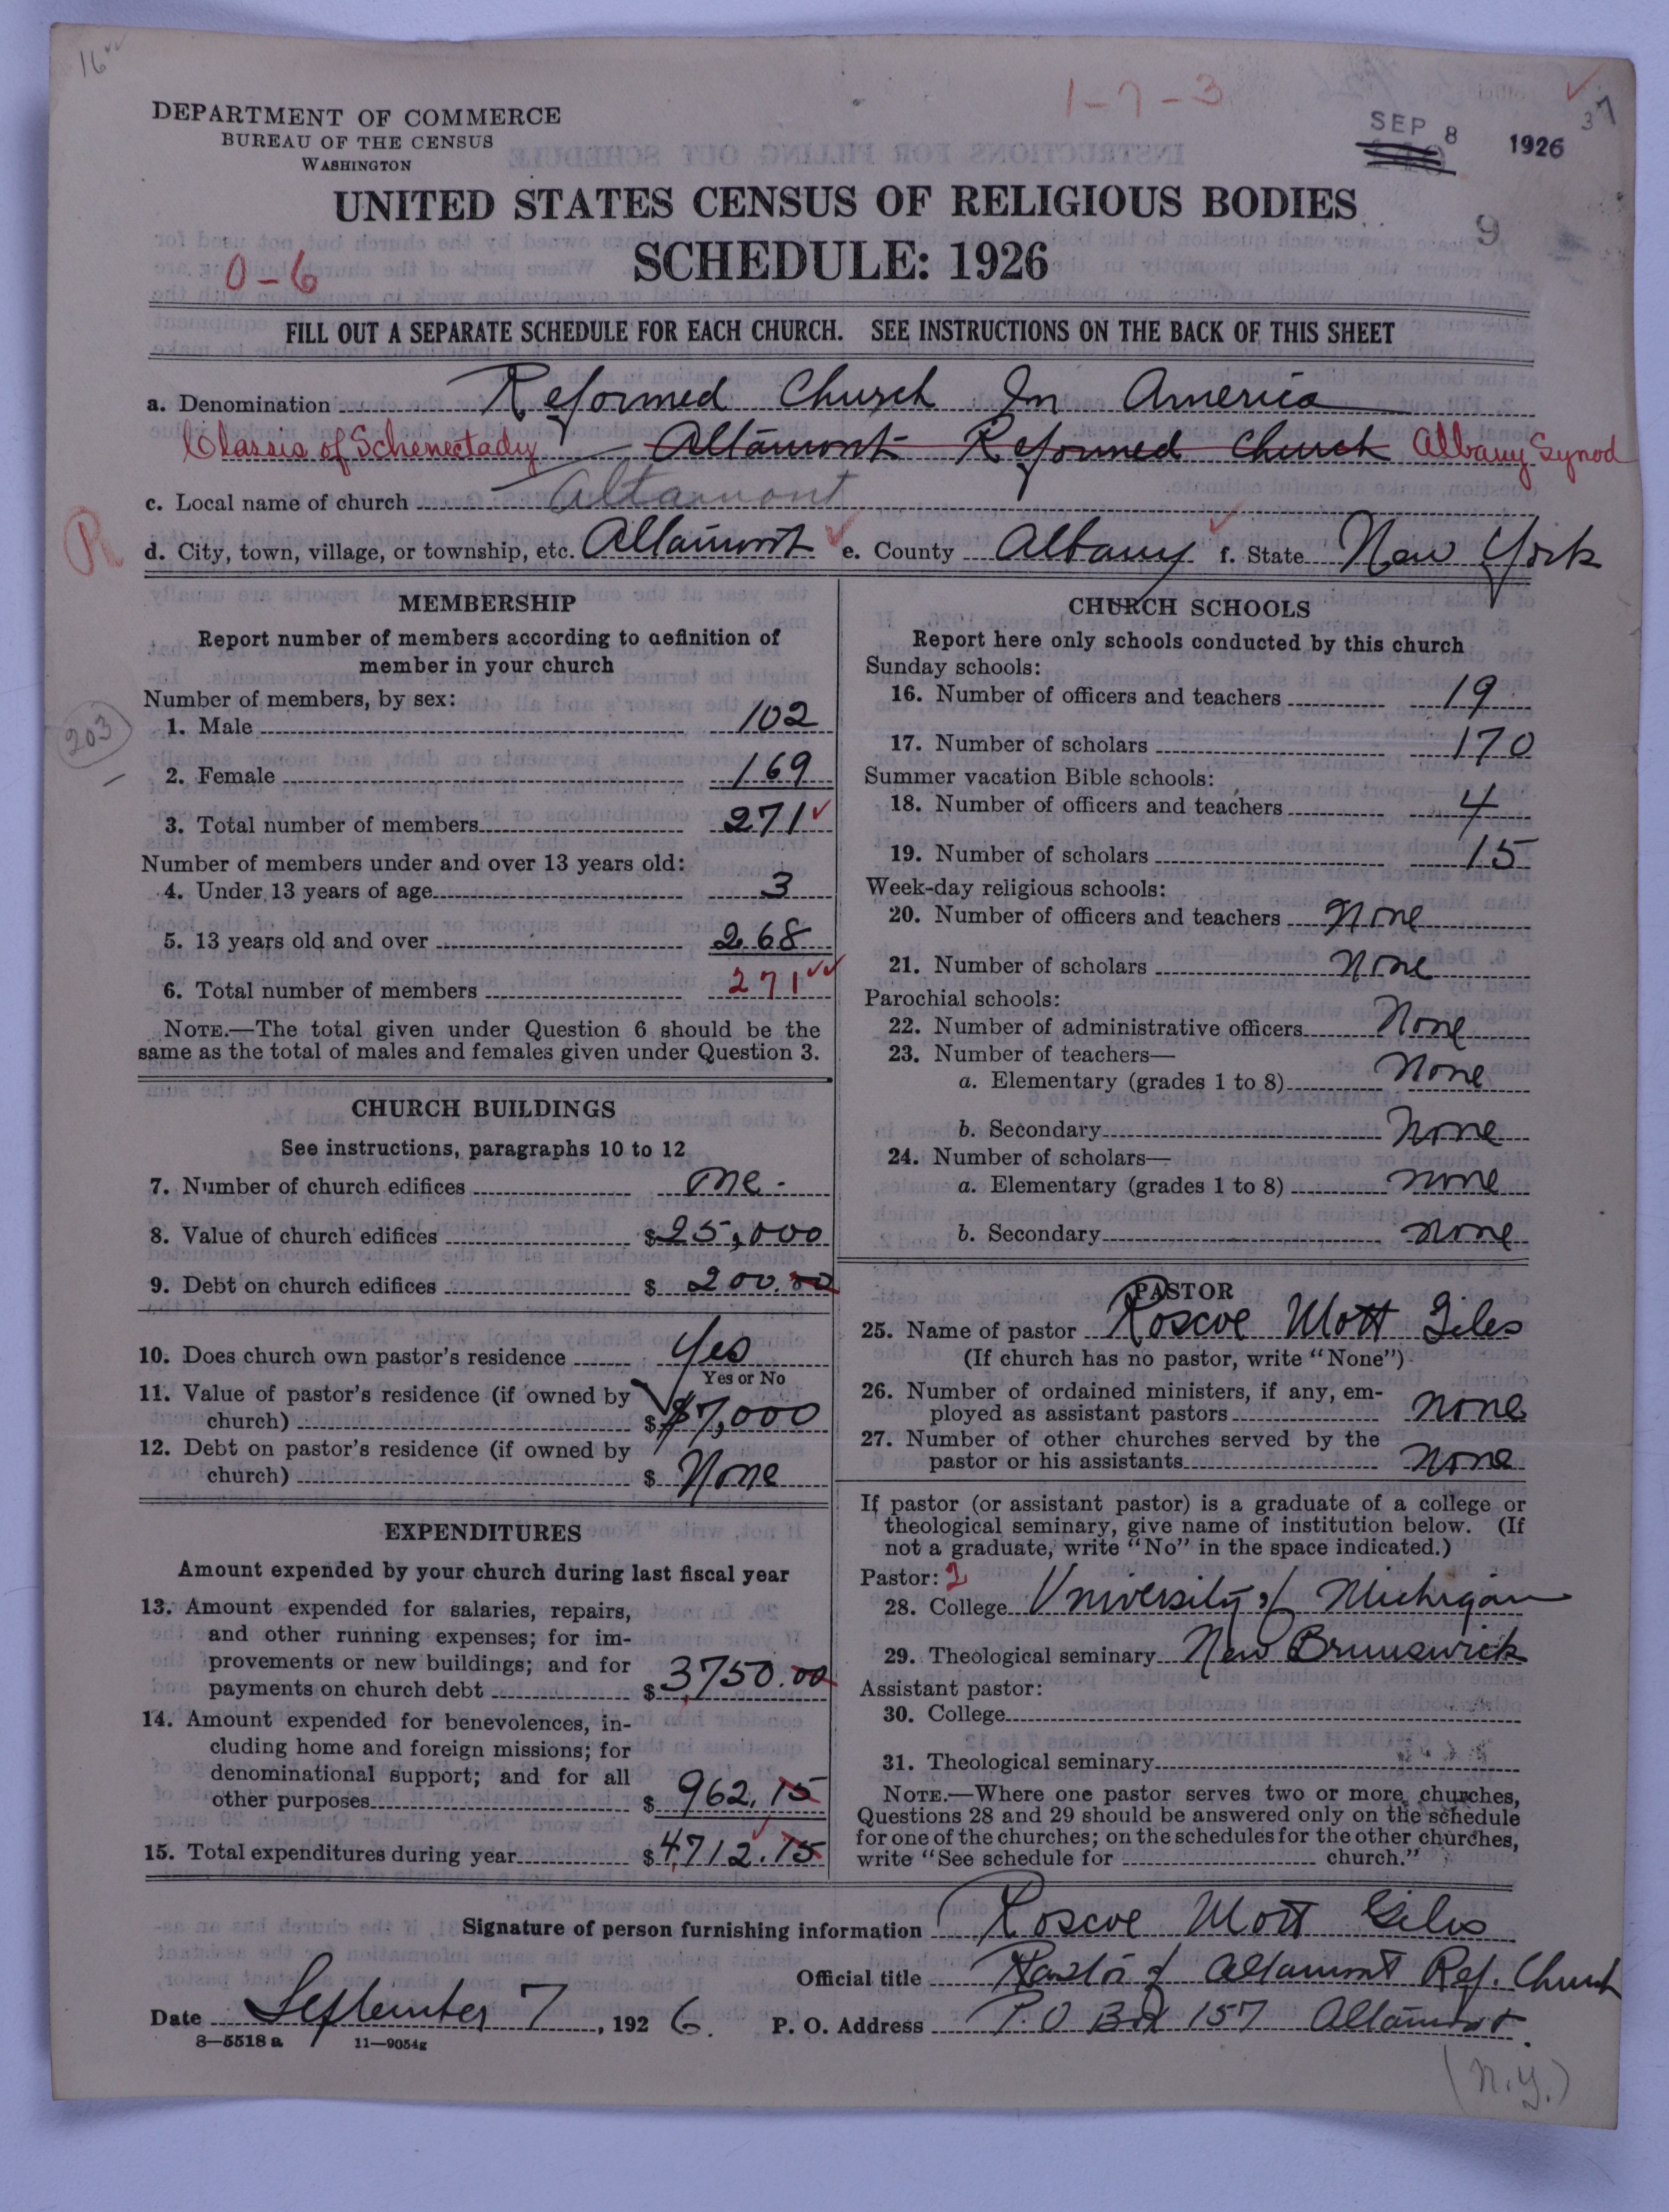 16
1-7-3
37
DEPARTMENT OF COMMERCE
BUREAU OF THE CENSUS
WASHINGTON
SEP 8 1926
UNITED STATES CENSUS OF RELIGIOUS BODIES
9
SCHEDULE: 1926
0-6
FILL OUT A SEPARATE SCHEDULE FOR EACH CHURCH. SEE INSTRUCTIONS ON THE BACK OF THIS SHEET
a. Denomination Reformed Church In America
Classis of Schenectady Altamont Reformed Church Albany Synod
c. Local name of church Altamont
R
d. City, town, village, or township, etc. Altamont e. County Albany f. State New York
MEMBERSHIP
Report number of members according to definition of
member in your church
Number of members, by sex:
1. Male 102
203
2. Female 169
3. Total number of members 271
Number of members under and over 13 years old:
4. Under 13 years of age 3
5. 13 years old and over 268
6. Total number of members 271
NOTE.—The total given under Question 6 should be the
same as the total of males and females given under Question 3.
CHURCH BUILDINGS
See instructions, paragraphs 10 to 12
7. Number of church edifices One.
8. Value of church edifices $25,000
9. Debt on church edifices $ 200.00
10. Does church own pastor's residence Yes
Yes or No
11. Value of pastor's residence (if owned by
church) $ $7,000
12. Debt on pastor's residence (if owned by
church) $ None
EXPENDITURES
Amount expended by your church during last fiscal year
13. Amount expended for salaries, repairs,
and other running expenses; for im-
provements or new buildings; and for
payments on church debt $ 3750.00
14. Amount expended for benevolences, in-
cluding home and foreign missions; for
denominational support; and for all
other purposes $ 962.15
15. Total expenditures during year $ 4712.15
CHURCH SCHOOLS
Report here only schools conducted by this church
Sunday schools:
16. Number of officers and teachers 19
17. Number of scholars 170
Summer vacation Bible schools:
18. Number of officers and teachers 4
19. Number of scholars 15
Week-day religious schools:
20. Number of officers and teachers None
21. Number of scholars None
Parochial schools:
22. Number of administrative officers None
23. Number of teachers—
a. Elementary (grades 1 to 8) None
b. Secondary None
24. Number of scholars—
a. Elementary (grades 1 to 8) None
b. Secondary None
PASTOR
25. Name of pastor Roscoe Mott Giles
(If church has no pastor, write "None")
26. Number of ordained ministers, if any, em-
ployed as assistant pastors None
27. Number of other churches served by the
pastor or his assistants None
If pastor (or assistant pastor) is a graduate of a college or
theological seminary, give name of institution below. (If
not a graduate, write "No" in the space indicated.)
Pastor: 2
28. College University of Michigan
29. Theological seminary New Brunswick
Assistant pastor:
30. College
31. Theological seminary
NOTE.—Where one pastor serves two or more churches,
Questions 28 and 29 should be answered only on the schedule
for one of the churches; on the schedules for the other churches,
write "See schedule for church."
Signature of person furnishing information Roscoe Mott Giles
Official title Pastor of Altamont Ref. Church
Date September 7, 1926. P. O. Address P.O Box 157 Altamont.
8—5518 a 11—9054g
(N.Y.)